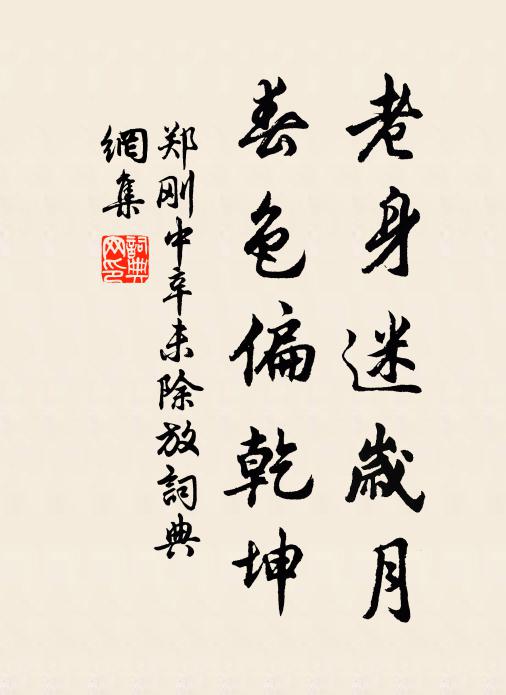 老身迷歲月
春色偏乾坤
郑刚中辛未除放詞典
網集
詞典网印